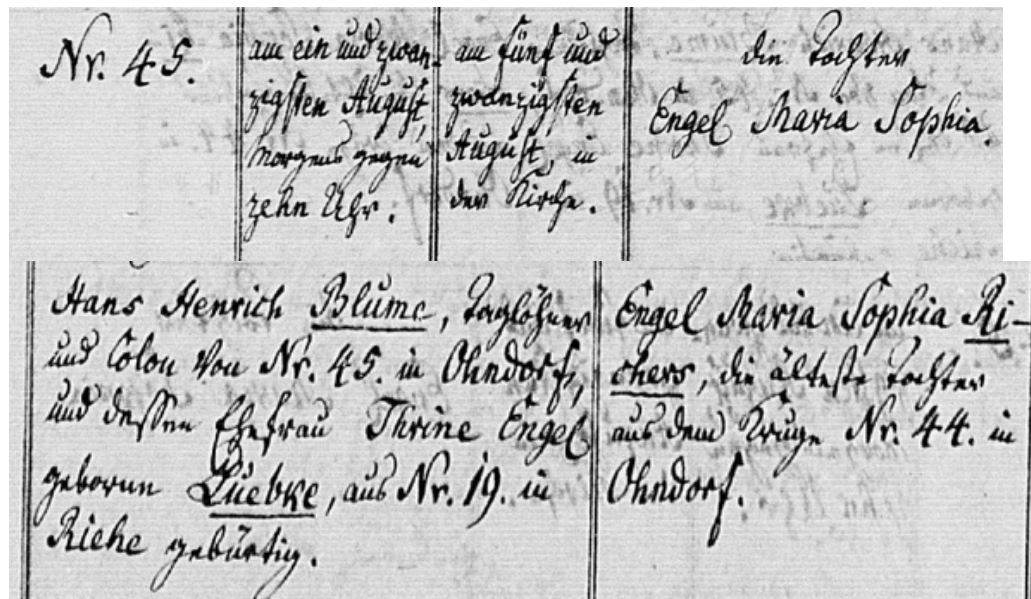 Nr. 45.
am ein und zwan-
zigsten August,
morgens gegen
zehn Uhr.
am fünf und
zwanzigsten
August, in
der Kirche.
die Tochter
Engel Maria Sophia.
Hans Henrich Blume, Taglöhner
und Colon von Nr. 45. in Ohndorf,
und dessen Ehefrau Thrine Engel
geborne Luebke, aus Nr. 19. in
Riehe gebürtig.
Engel Maria Sophia Ri-
chers, die älteste Tochter
aus dem Kruge Nr. 44. in
Ohndorf.